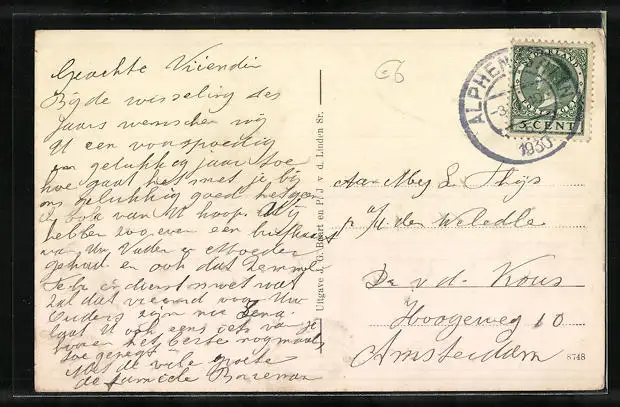 Geachte Vriendin
Bij de wisseling des
Jaars wenschen wij
U een voorspoedig
en gelukkig jaar toe
hoe gaat het met je bij
ons gelukkig goed hetgeen
ik ook van U hoop. Wij
hebben zoo even een briefkaart
van Uw Vader en Moeder
gehad en ook dat
dienst
zal dat vreemd voor Uw
Ouders zijn nu Lena
laat U ook eens iets van je
hooren het beste nogmaals
toe gewenst
Met de vele groete
de familie
Uitgave J. G. Beart en P. J. v. d. Linden Sr.
ALPHEN
1930
NEDERLAND
5 CENT
Aan Mej L. Thijs
p a/d den Weledle
Dr v d. Kous
Hoogeweg 10
Amsterdam
8748